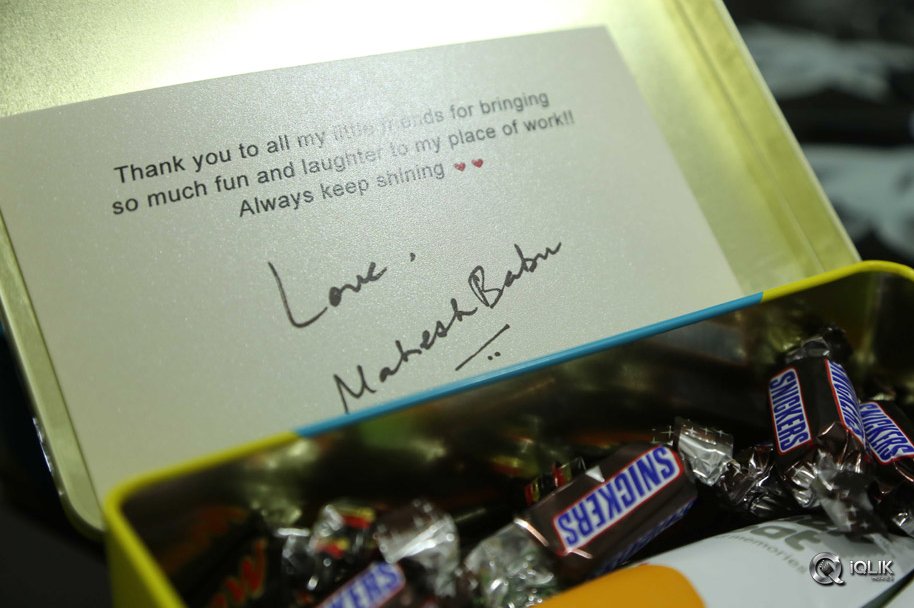 Thank you to all my little friends for bringing
so much fun and laughter to my place of work!!
Always keep shining ❤❤
Love,
Mahesh Babu
SNICKERS
SNICKERS
SNICKERS
SNICKERS
memories
iQLIK